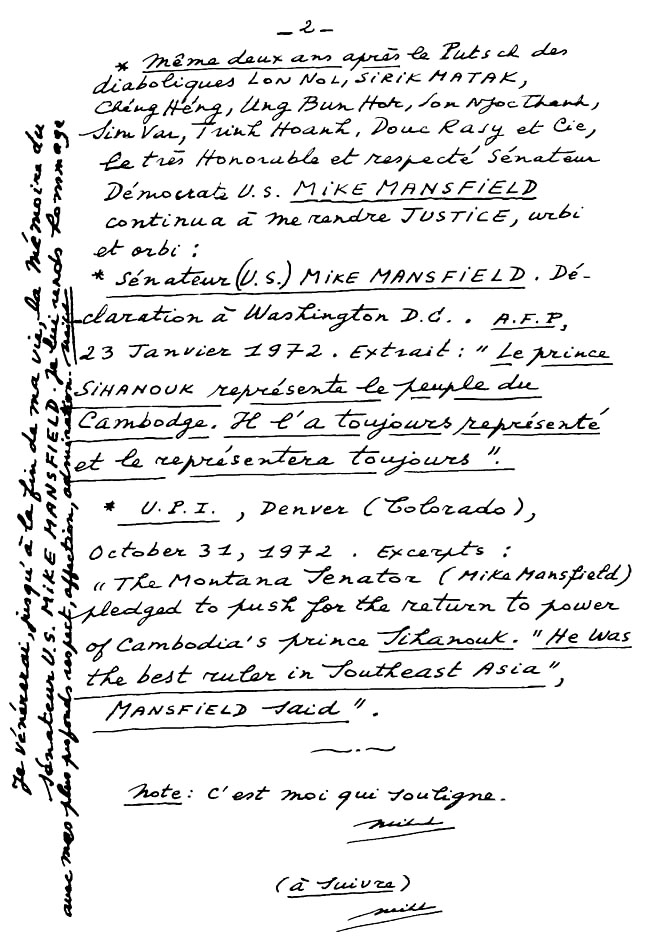 — 2 —
* Même deux ans après le Putsch des
diaboliques LON NOL, SIRIK MATAK,
Chéng Héng, Ung Bun Hor, Son Ngoc Thanh,
Sim Var, Trinh Hoanh, Douc Rasy et Cie,
le très Honorable et respecté Sénateur
Démocrate U.S. MIKE MANSFIELD
continua à me rendre JUSTICE, urbi
et orbi :
* Sénateur (U.S.) MIKE MANSFIELD. Dé-
claration à Washington D.C. . A.F.P,
23 Janvier 1972. Extrait : " Le prince
SIHANOUK représente le peuple du
Cambodge. Il l'a toujours représenté
et le représentera toujours ".
* U.P.I. , Denver (Colorado),
October 31, 1972 . Excerpts :
" The Montana Senator (Mike Mansfield)
pledged to push for the return to power
of Cambodia's prince Sihanouk. "He was
the best ruler in Southeast Asia",
MANSFIELD said ".
Note : C'est moi qui souligne.
(à suivre)
Je vénérerai, jusqu'à la fin de ma vie, la mémoire du
Sénateur U.S. MIKE MANSFIELD. Je lui rends hommage
avec mes plus profonds respect, affection, admiration.